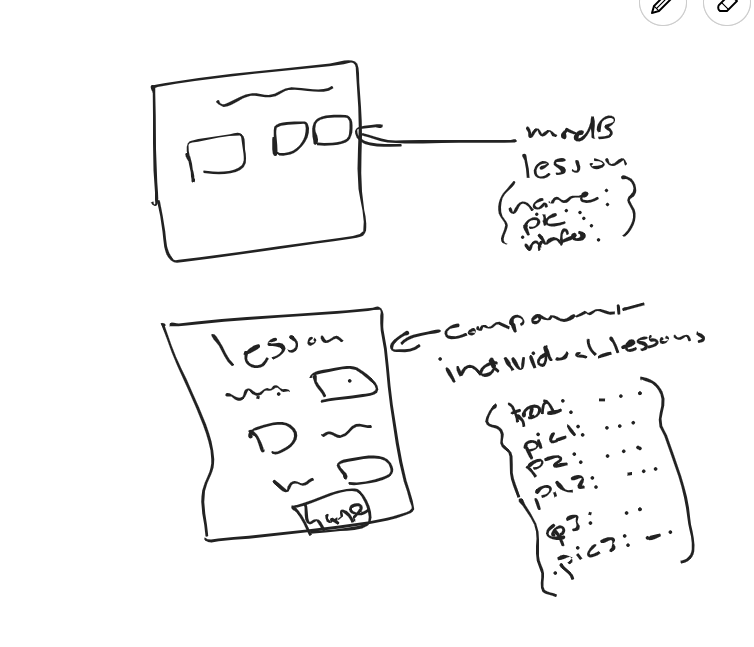 lesson
name:
pic:
info:
lesson
component
individual_lessons
pic1: ...
p2: ...
pic2: ...
pic3: -.